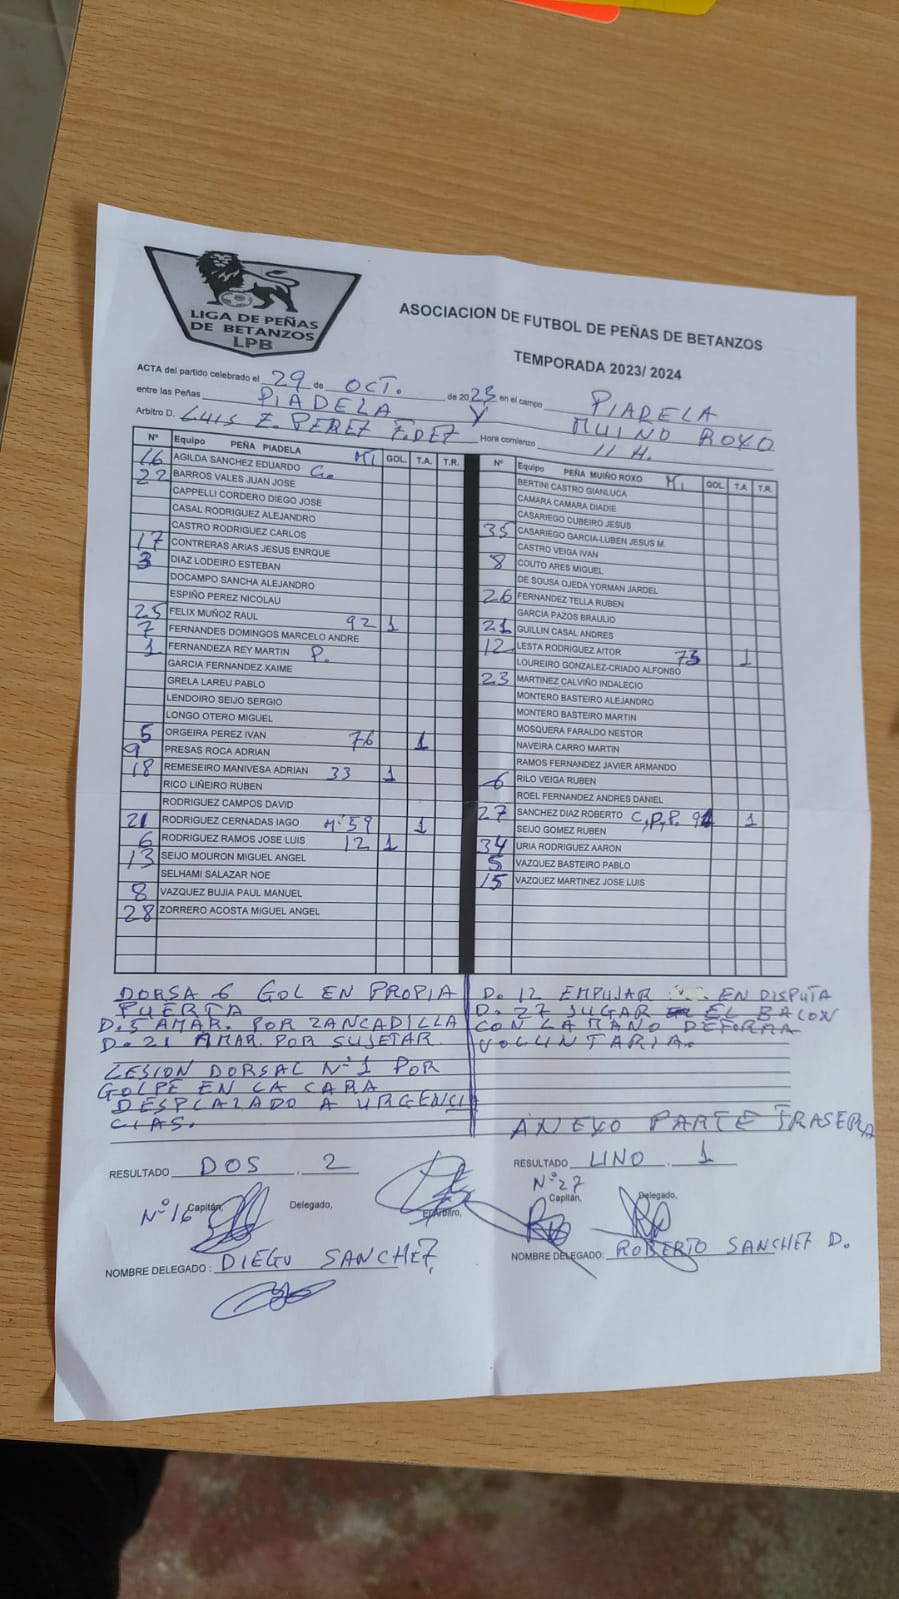 LIGA DE PEÑAS
DE BETANZOS
LPB
ASOCIACION DE FUTBOL DE PEÑAS DE BETANZOS
TEMPORADA 2023/ 2024
ACTA del partido celebrado el 29 de OCT. de 2023 en el campo PIADELA
entre las Peñas PIADELA Y MUINO ROXO
Arbitro D. LUIS Z. PEREZ F.DEZ Hora comienzo 11 H.
Nº Equipo PEÑA PIADELA Mi GOL. T.A. T.R.
16 AGILDA SANCHEZ EDUARDO C.
22 BARROS VALES JUAN JOSE
CAPPELLI CORDERO DIEGO JOSE
CASAL RODRIGUEZ ALEJANDRO
CASTRO RODRIGUEZ CARLOS
17 CONTRERAS ARIAS JESUS ENRQUE
3 DIAZ LODEIRO ESTEBAN
DOCAMPO SANCHA ALEJANDRO
ESPIÑO PEREZ NICOLAU
25 FELIX MUÑOZ RAUL 92 1
7 FERNANDES DOMINGOS MARCELO ANDRE
1 FERNANDEZA REY MARTIN P.
GARCIA FERNANDEZ XAIME
GRELA LAREU PABLO
LENDOIRO SEIJO SERGIO
LONGO OTERO MIGUEL
5 ORGEIRA PEREZ IVAN 76 1
9 PRESAS ROCA ADRIAN
18 REMESEIRO MANIVESA ADRIAN 33 1
RICO LIÑEIRO RUBEN
RODRIGUEZ CAMPOS DAVID
21 RODRIGUEZ CERNADAS IAGO M.59 1
6 RODRIGUEZ RAMOS JOSE LUIS 12 1
13 SEIJO MOURON MIGUEL ANGEL
SELHAMI SALAZAR NOE
8 VAZQUEZ BUJIA PAUL MANUEL
28 ZORRERO ACOSTA MIGUEL ANGEL
Nº Equipo PEÑA MUIÑO ROXO Mi GOL. T.A T.R.
BERTINI CASTRO GIANLUCA
CAMARA CAMARA DIADIE
CASARIEGO CUBEIRO JESUS
35 CASARIEGO GARCIA-LUBEN JESUS M.
CASTRO VEIGA IVAN
8 COUTO ARES MIGUEL
DE SOUSA OJEDA YORMAN JARDEL
26 FERNANDEZ TELLA RUBEN
GARCIA PAZOS BRAULIO
21 GUILLIN CASAL ANDRES
12 LESTA RODRIGUEZ AITOR 75 1
LOUREIRO GONZALEZ-CRIADO ALFONSO
23 MARTINEZ CALVIÑO INDALECIO
MONTERO BASTEIRO ALEJANDRO
MONTERO BASTEIRO MARTIN
MOSQUERA FARALDO NESTOR
NAVEIRA CARRO MARTIN
RAMOS FERNANDEZ JAVIER ARMANDO
6 RILO VEIGA RUBEN
ROEL FERNANDEZ ANDRES DANIEL
27 SANCHEZ DIAZ ROBERTO C,P,P. 1
SEIJO GOMEZ RUBEN
34 URIA RODRIGUEZ AARON
5 VAZQUEZ BASTEIRO PABLO
15 VAZQUEZ MARTINEZ JOSE LUIS
DORSA 6 GOL EN PROPIA
PUERTA
D.5 AMAR. POR ZANCADILLA
D. 21 AMAR. POR SUJETAR
LESION DORSAL Nº1 POR
GOLPE EN LA CARA
DESPLAZADO A URGENCI
CIAS.
D. 12 EMPUJAR EN DISPUTA
D. 27 JUGAR EL BALON
CON LA MANO DE FORMA
VOLUNTARIA.
ANEXO PARTE TRASERA
RESULTADO DOS . 2
RESULTADO UNO . 1
Nº16 Capitán, Delegado, El Arbitro,
Nº27
Capitán, Delegado,
NOMBRE DELEGADO : DIEGO SANCHEZ
NOMBRE DELEGADO: ROBERTO SANCHEZ D.